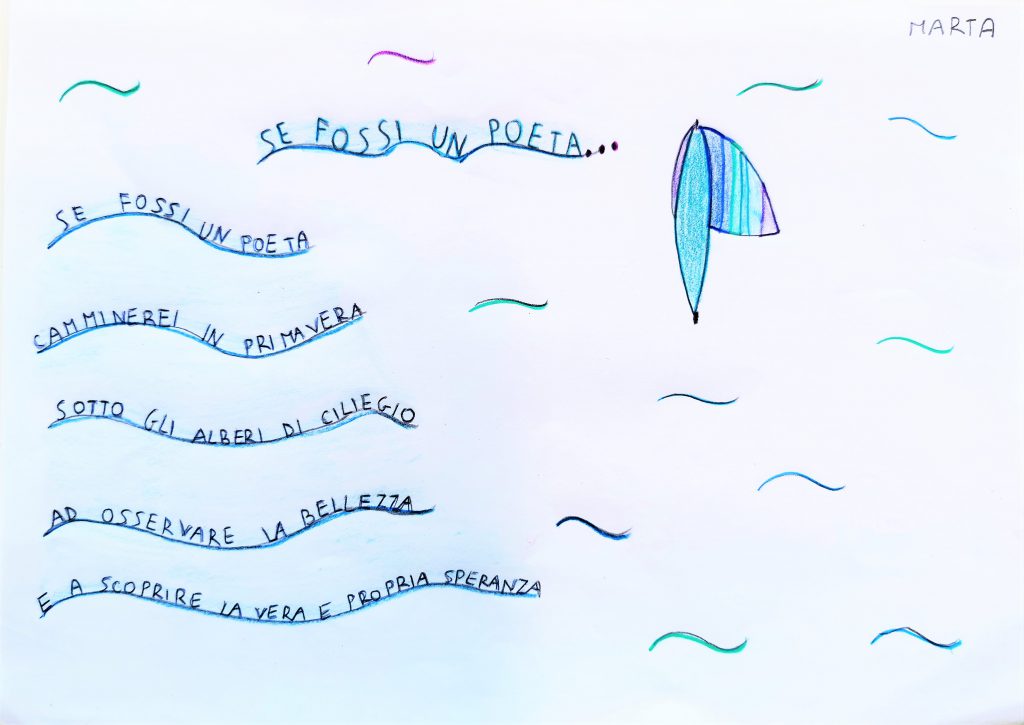 MARTA
SE FOSSI UN POETA...
SE FOSSI UN POETA
CAMMINEREI IN PRIMAVERA
SOTTO GLI ALBERI DI CILIEGIO
AD OSSERVARE LA BELLEZZA
E A SCOPRIRE LA VERA E PROPRIA SPERANZA